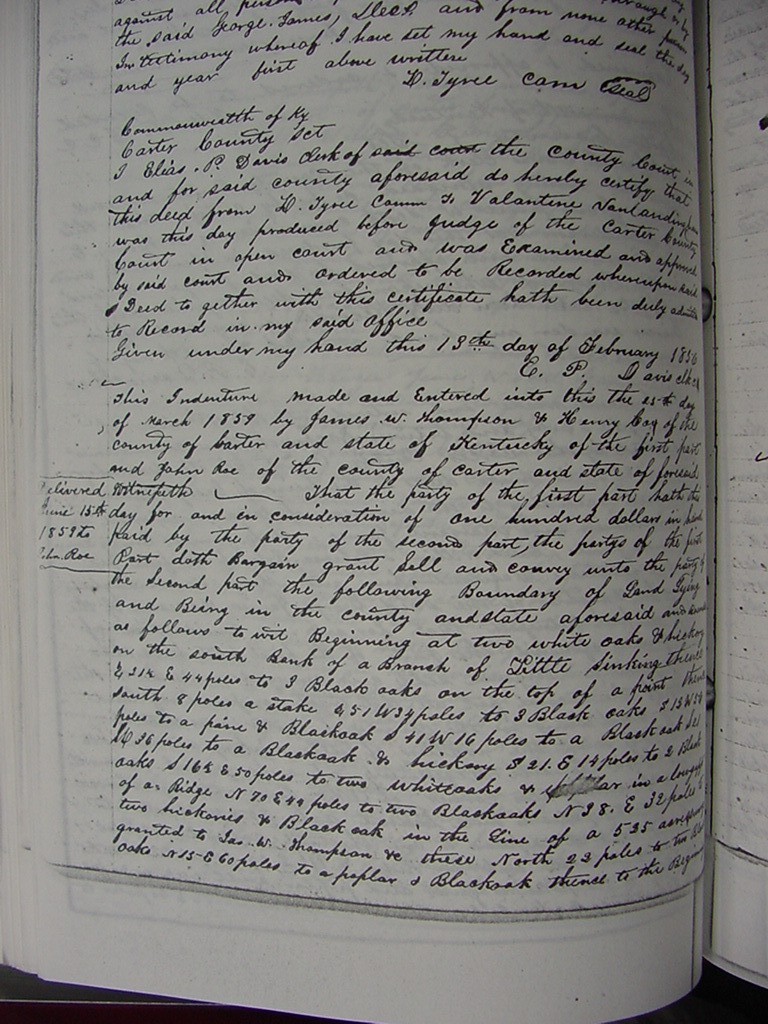 against all persons
the said George James, Decd and from none other person
In testimony whereof I have set my hand and seal the day
and year first above written
H. Tyree Com Seal
Commonwealth of Ky
Carter County Sct
I Elias P. Davis Clerk of said court the County Court in
and for said county aforesaid do hereby certify that
this deed from H. Tyree Comm To Valantine Vanlandingham
was this day produced before Judge of the Carter County
Court in open court and was Examined and approved
by said court and ordered to be Recorded whereupon said
Deed to gether with this certificate hath been duly admitted
to Record in my said office
Given under my hand this 13th day of February 185
E. P. Davis clk
This Indenture made and Entered into this the 25th day
of March 1859 by James W. Thompson & Henry Coy of the
county of Carter and state of Kentucky of the first part
and John Roe of the county of carter and state of foresaid
Witnesseth That the party of the first part hath this
day for and in consideration of one hundred dollars in hand
paid by the party of the second part, the partys of the first
Part doth Bargain grant Sell and convey unto the party of
the Second part the following Boundary of Land Lying
and Being in the county and state aforesaid and
as follows to wit Beginning at two white oaks & hickory
on the south Bank of a Branch of Little Sinking thence
S 31 E 44 poles to 3 Black oaks on the top of a point thence
South 8 poles a stake S 51 W 34 poles to 3 Black oaks S 15 W 58
poles to a pine & Blackoak S 41 W 16 poles to a Black oak S 61
W 36 poles to a Blackoak & hickory S 21. E 14 poles to 2 Black
oaks S 16 E 50 poles to two whiteoaks & poplar in a low gap
of a Ridge N 70 E 44 poles to two Blackoaks N 38. E 32 poles to
two hickories & Black oak in the Line of a 525 acre
granted to Jas. W. Thompson &c these North 23 poles to two Black
oaks N 15 E 60 poles to a poplar & Blackoak thence to the Beginning
Delivered
June 15th
1859 to
John Roe